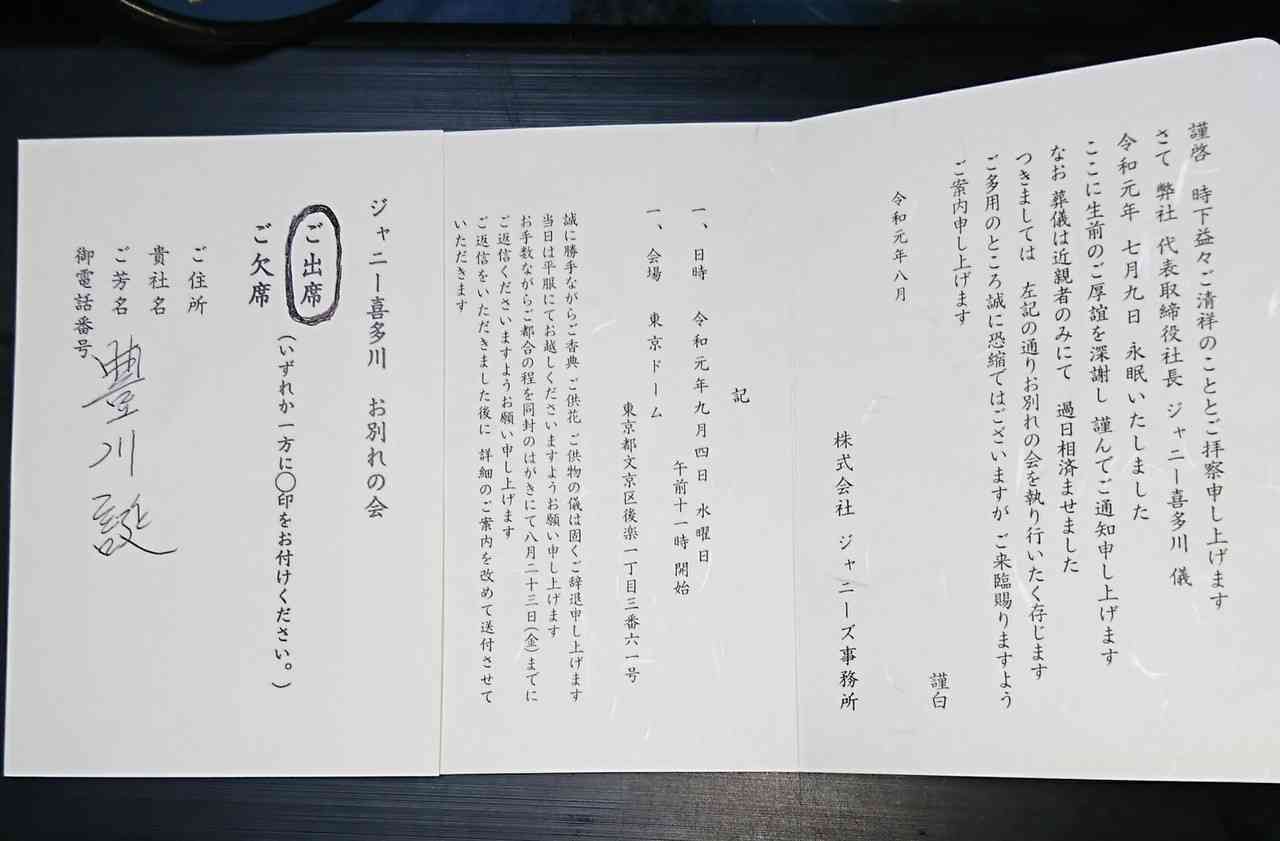 謹啓 時下益々ご清祥のこととご拝察申し上げます
さて 弊社 代表取締役社長 ジャニー喜多川 儀
令和元年 七月九日 永眠いたしました
ここに生前のご厚誼を深謝し 謹んでご通知申し上げます
なお 葬儀は近親者のみにて 過日相済ませました
つきましては 左記の通りお別れの会を執り行いたく存じます
ご多用のところ誠に恐縮ではございますが ご来臨賜りますよう
ご案内申し上げます
謹白
令和元年八月
株式会社 ジャニーズ事務所
記
一、日時 令和元年九月四日 水曜日
午前十一時 開始
一、会場 東京ドーム
東京都文京区後楽一丁目三番六一号
誠に勝手ながらご香典 ご供花 ご供物の儀は固くご辞退申し上げます
当日は平服にてお越しくださいますようお願い申し上げます
お手数ながらご都合の程を同封のはがきにて八月二十三日(金)までに
ご返信くださいますようお願い申し上げます
ご返信をいただきました後に 詳細のご案内を改めて送付させて
いただきます
ジャニー喜多川 お別れの会
ご出席
ご欠席
(いずれか一方に○印をお付けください。)
ご住所
貴社名
ご芳名
豊川誕
御電話番号